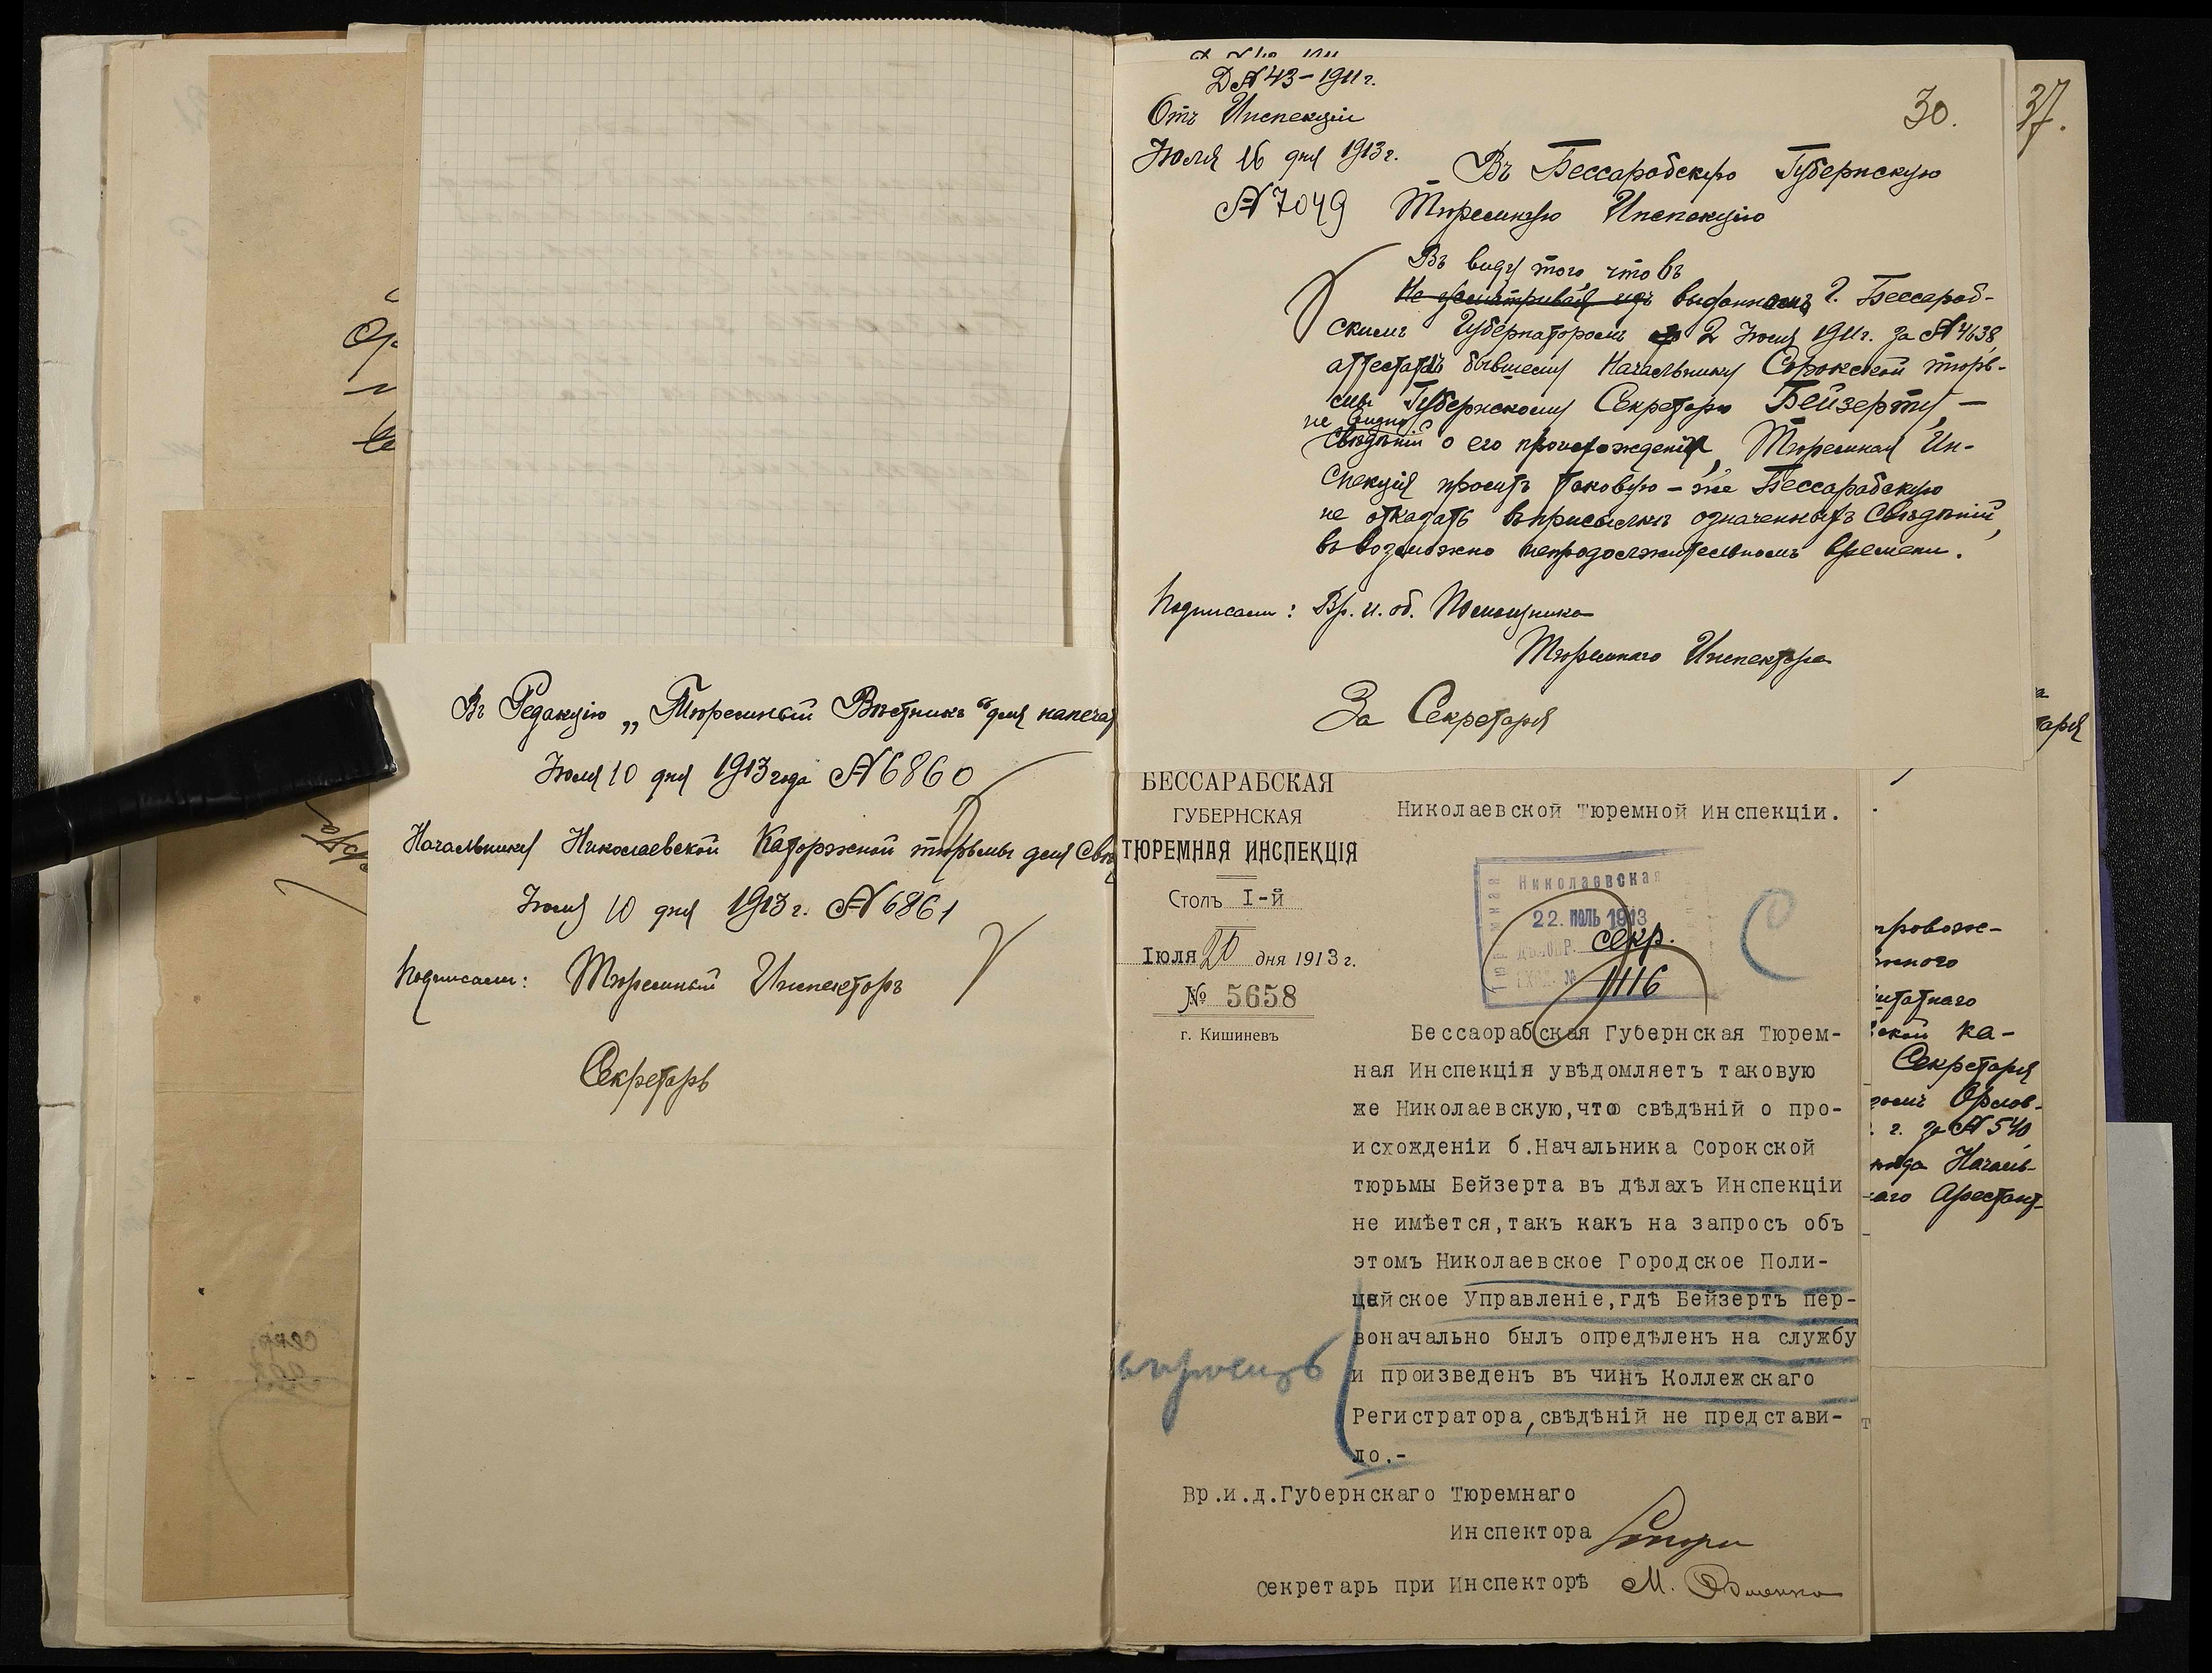 Въ Редакцію „Тюремный Вѣстникъ“ для напечат
Іюля 10 дня 1913 года № 6860
Начальнику Николаевской Каторжной тюрьмы для Свѣд
Іюля 10 дня 1913 г. № 6861
Подписали: Тюремный Инспекторъ
Секретарь
Д № 43 – 1911 г.
Отъ Инспекціи
Іюля 16 дня 1913 г.
№ 7049
30.
37.
Въ Бессарабскую Губернскую
Тюремную Инспекцію
Въ виду того, что въ
выданномъ Г. Бессараб-
скимъ Губернаторомъ 2 Іюля 1911 г. за № 4638,
аттестатѣ бывшему Начальнику Сорокской тюрь-
мы Губернскому Секретарю Бейзерту, –
не видно
Свѣдѣній о его происхожденіи, Тюремная Ин-
спекція проситъ таковую – же Бессарабскую
не отказать въ присылкѣ означенныхъ Свѣдѣній,
въ возможно непродолжительномъ времени.
Подписали: Вр. и. об. Помощника
Тюремнаго Инспектора
За Секретаря
БЕССАРАБСКАЯ
ГУБЕРНСКАЯ
ТЮРЕМНАЯ ИНСПЕКЦІЯ
Столъ I-й
Іюля 20 дня 1913 г.
№ 5658
г. Кишиневъ
Николаевской Тюремной Инспекціи.
Николаевская
22. ІЮЛЬ 1913
секр.
1116
Бессаорабская Губернская Тюрем-
ная Инспекція увѣдомляетъ таковую
же Николаевскую,что свѣдѣній о про-
исхожденіи б.Начальника Сорокской
тюрьмы Бейзерта въ дѣлахъ Инспекціи
не имѣется,такъ какъ на запросъ объ
этомъ Николаевское Городское Поли-
цейское Управленіе,гдѣ Бейзертъ пер-
воначально былъ опредѣленъ на службу
и произведенъ въ чинъ Коллежскаго
Регистратора,свѣдѣній не представи-
ло.-
Вр.и.д.Губернскаго Тюремнаго
Инспектора
Секретарь при Инспекторѣ М.
таря
провож-
нного
татнаго
ской Ка-
Секретаря
ромъ Орлов-
г. за № 540
Началь-
наго Арестант-